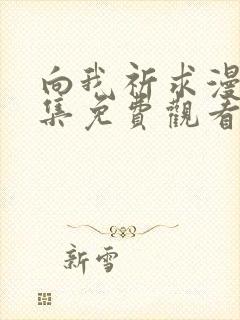 向我祈求漫
集免費觀看
新雪